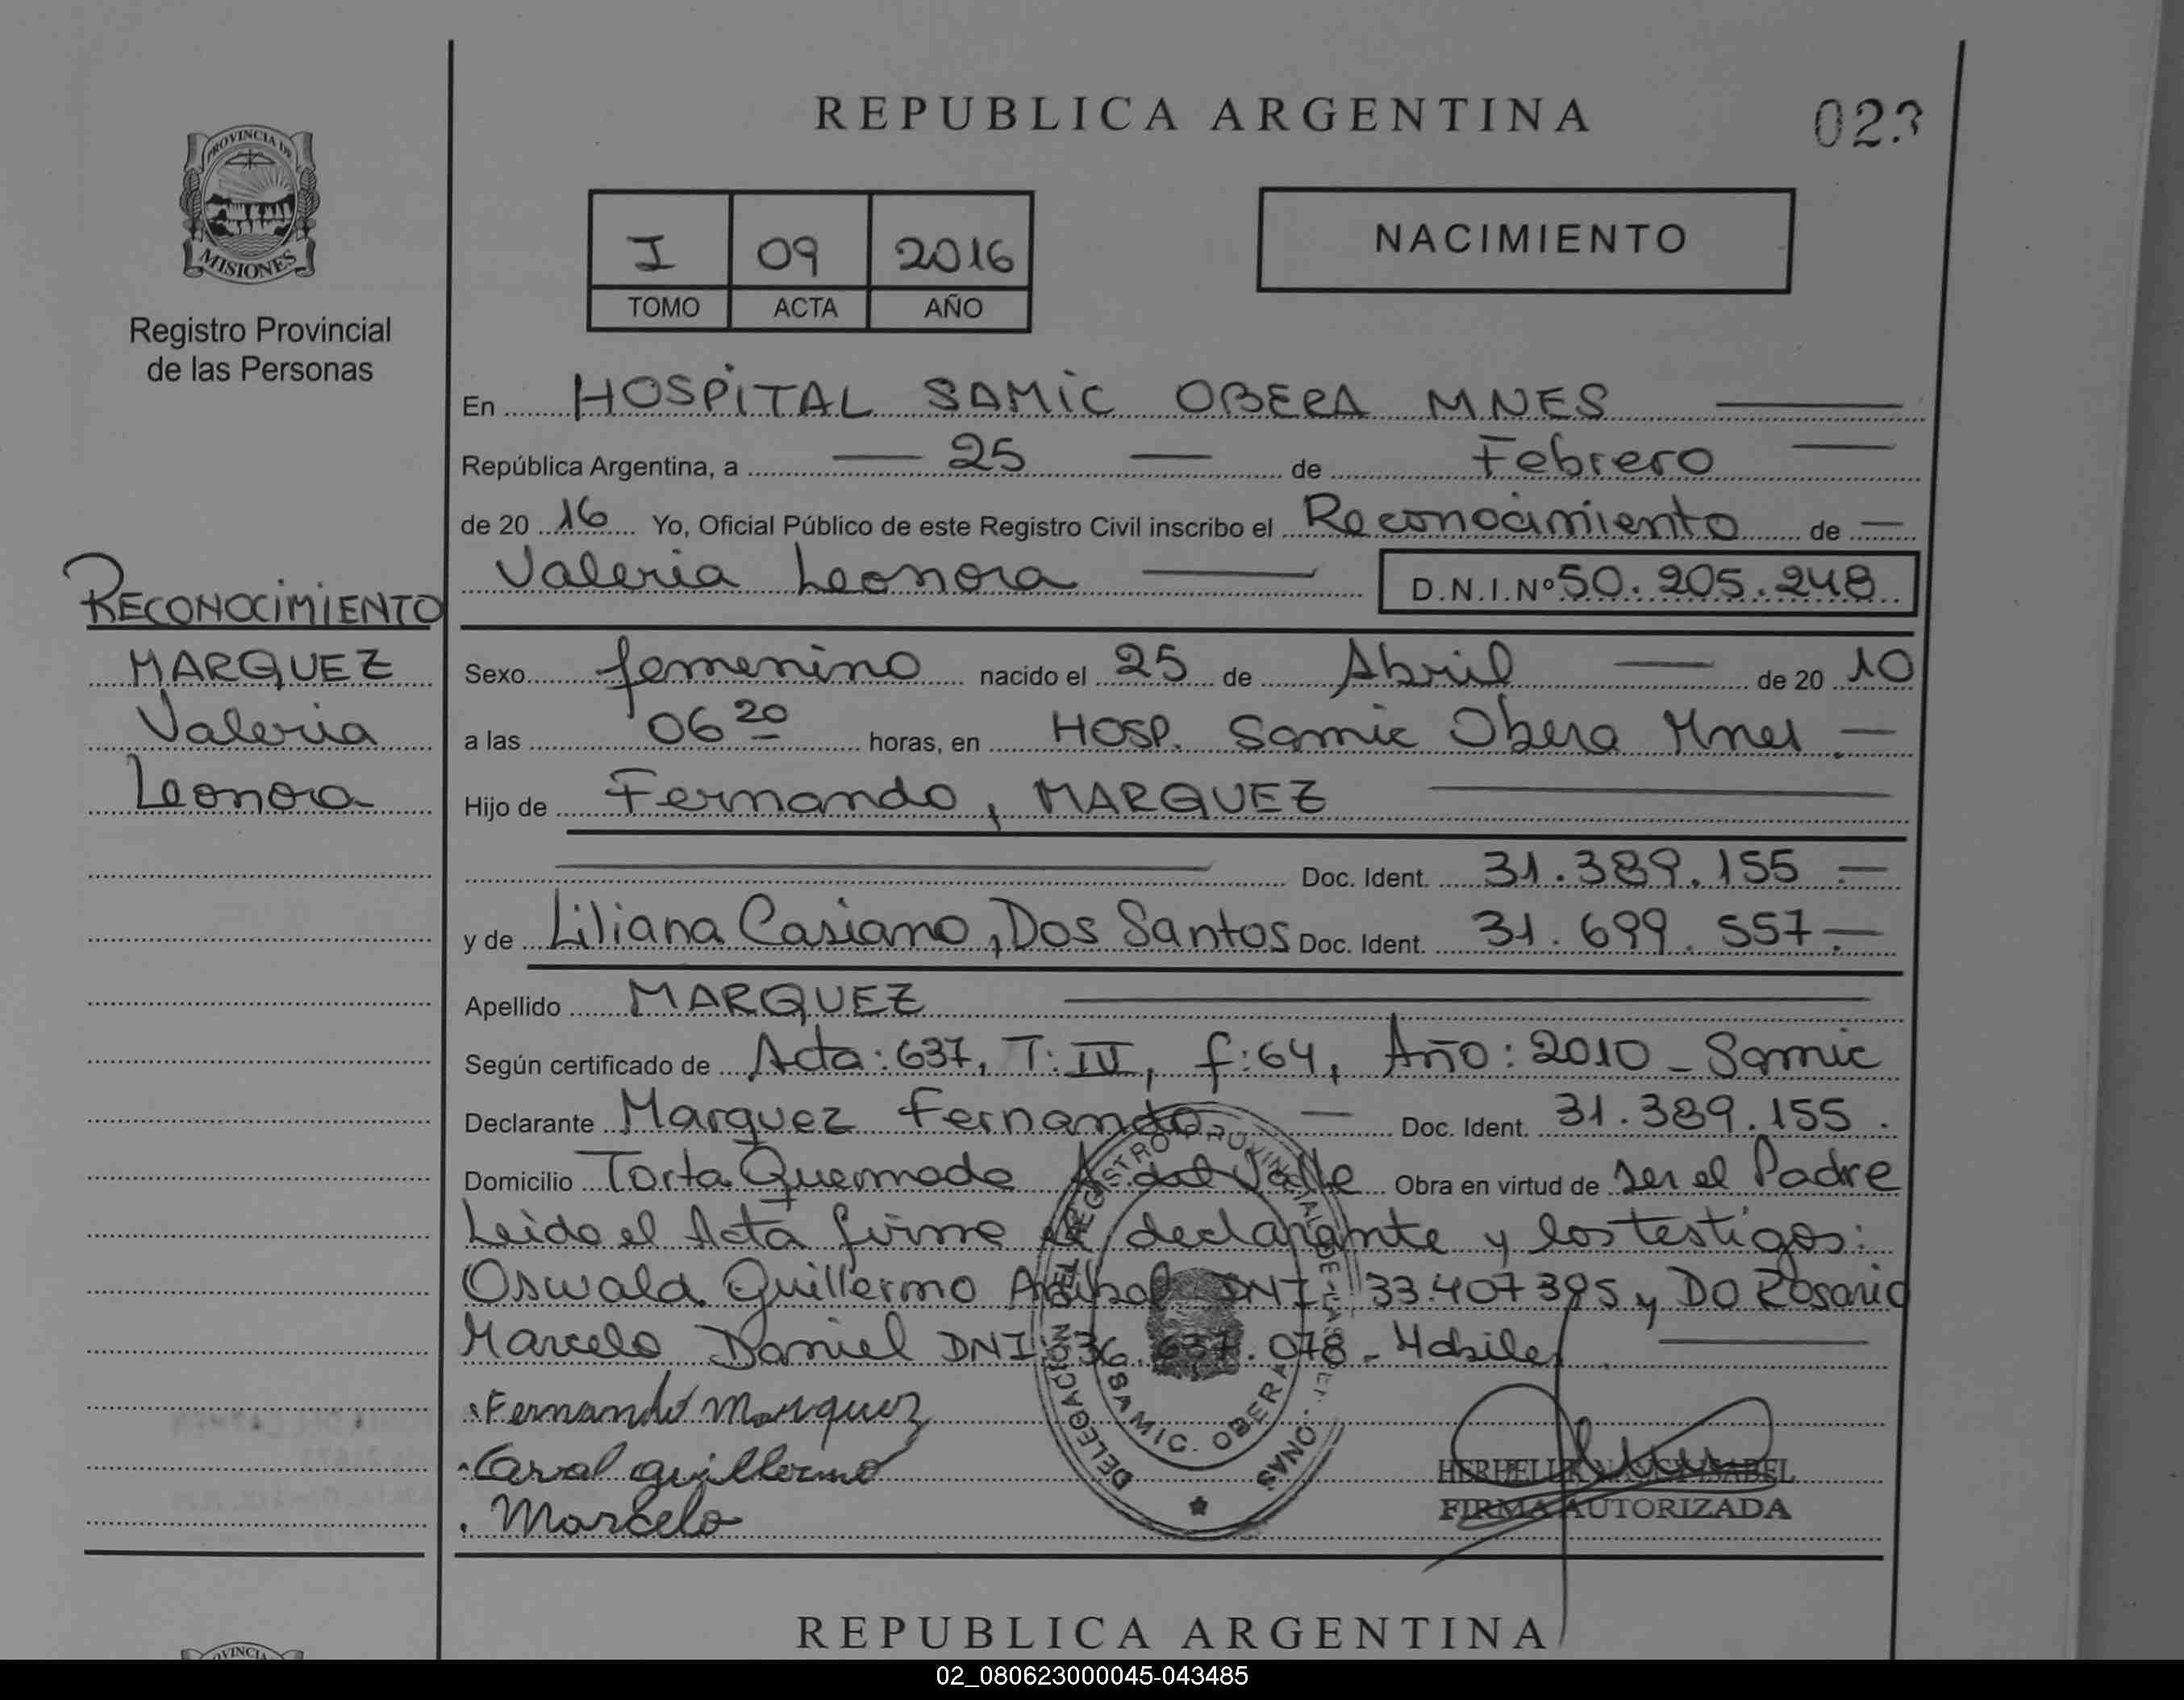 REPUBLICA ARGENTINA
023
PROVINCIA DE
MISIONES
Registro Provincial
de las Personas
I 09 2016
TOMO ACTA AÑO
NACIMIENTO
En HOSPITAL SAMIC OBERA MNES
República Argentina, a 25 de Febrero
de 20 16 Yo, Oficial Público de este Registro Civil inscribo el Reconocimiento de
Valeria Leonora D.N.I.Nº 50.205.248
RECONOCIMIENTO
MARQUEZ
Valeria
Leonora
Sexo femenino nacido el 25 de Abril de 20 10
a las 06 20 horas, en HOSP. Samic Obera Mnes
Hijo de Fernando, MARQUEZ
Doc. Ident. 31.389.155
y de Liliana Casiano, Dos Santos Doc. Ident. 31.699.557
Apellido MARQUEZ
Según certificado de Acta: 637, T: IV, f: 64, Año: 2010 - Samic
Declarante Marquez Fernando Doc. Ident. 31.389.155.
Domicilio Torta Quemada A. del Valle Obra en virtud de ser el Padre
Leido el Acta firma el declarante y los testigos:
Oswald Guillermo Anibal DNI 33.407395 y DO Rosario
Marcelo Daniel DNI 36.637.078 - Habiles
Fernando Marquez
guillermo
Marcelo
DELEGACION DEL REGISTRO PROVINCIAL DE LAS PERSONAS
SAMIC. OBERA
FIRMA AUTORIZADA
REPUBLICA ARGENTINA
02_080623000045-043485